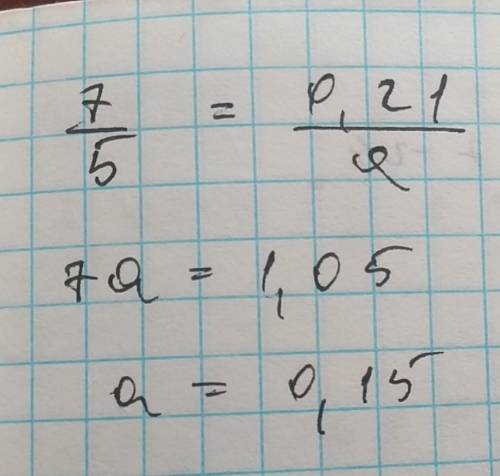 7/5 = 0,21/a
7a = 1,05
a = 0,15